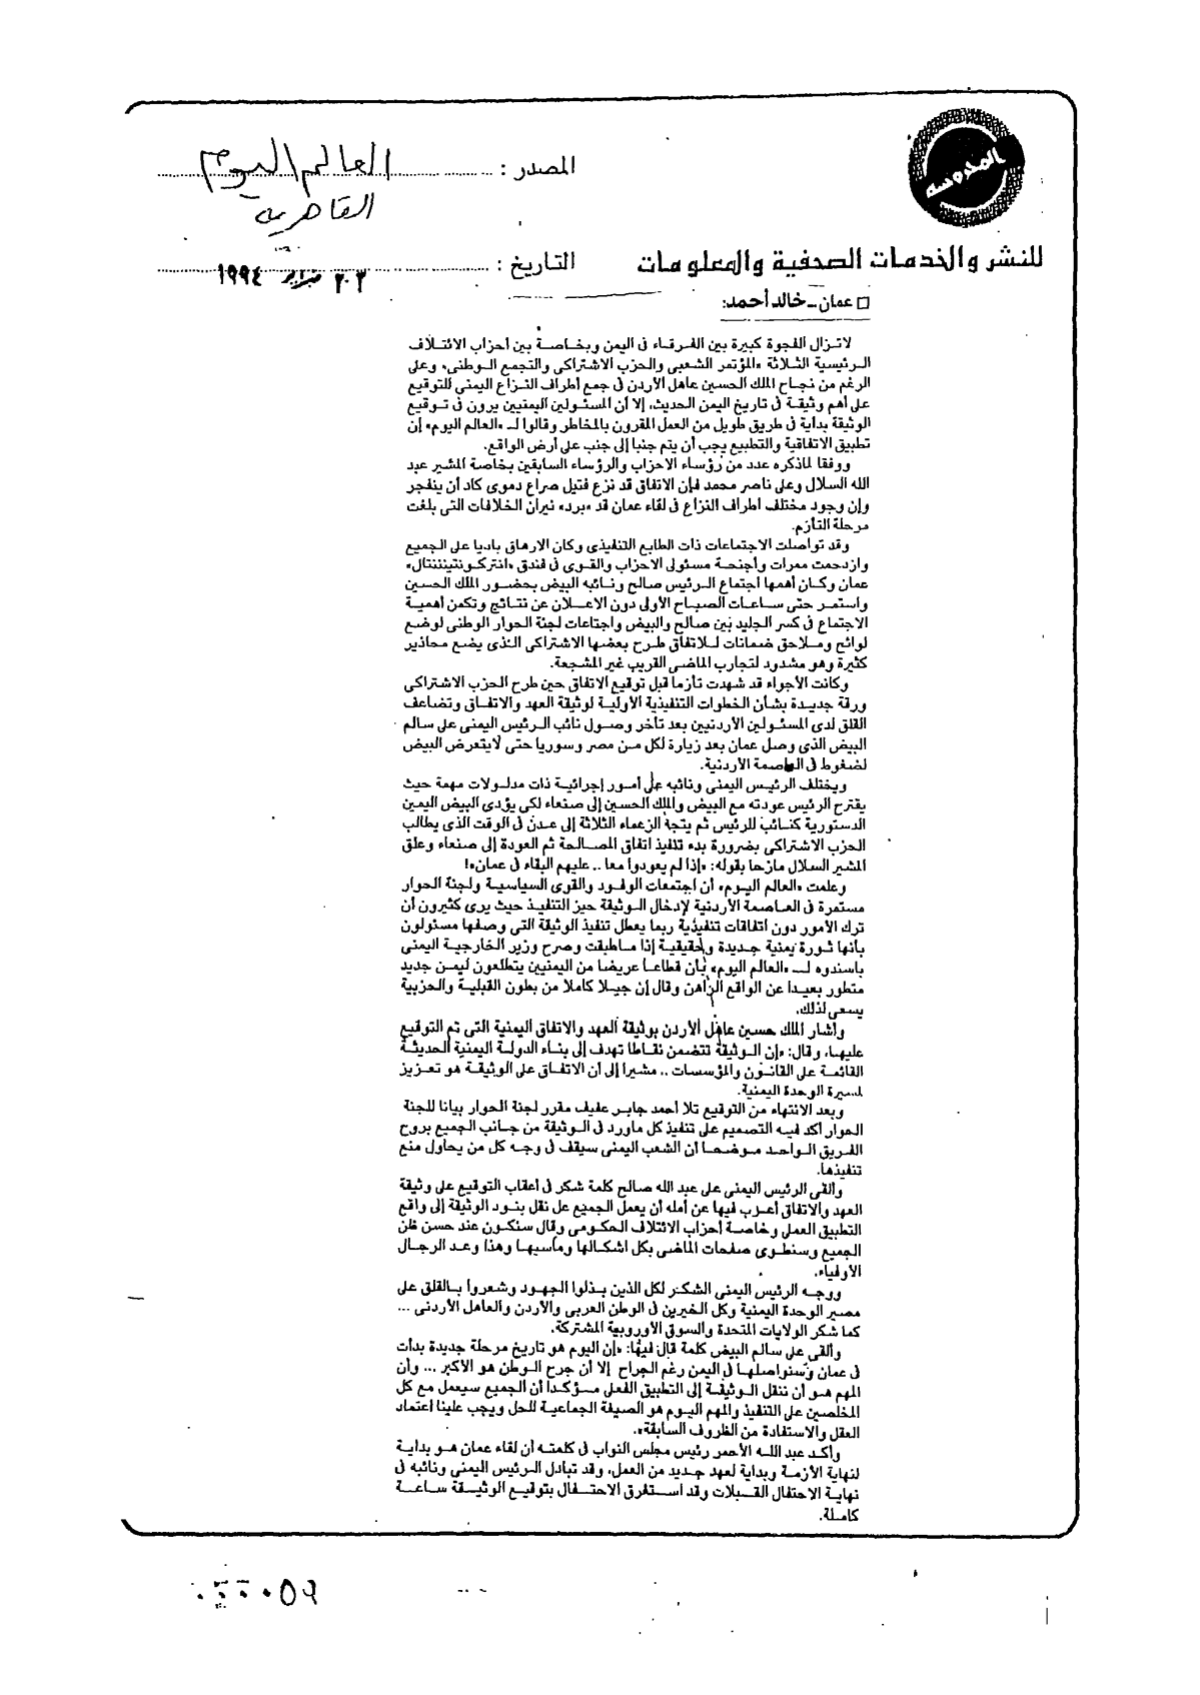 المدروسة
المصدر :
العالم اليوم
القاهرية
للنشر والخدمات الصحفية والمعلومات
التاريخ :
فبراير ١٩٩٤
□ عمان ـ خالد أحمد:
لاتزال الفجوة كبيرة بين الفرقاء فى اليمن وبخاصة بين أحزاب الائتلاف
الرئيسية الثلاثة «المؤتمر الشعبى والحزب الاشتراكى والتجمع الوطنى» وعلى
الرغم من نجاح الملك الحسين عاهل الأردن فى جمع أطراف النزاع اليمنى للتوقيع
على أهم وثيقة فى تاريخ اليمن الحديث، إلا أن المسئولين اليمنيين يرون فى توقيع
الوثيقة بداية فى طريق طويل من العمل المقرون بالمخاطر وقالوا لـ «العالم اليوم» إن
تطبيق الاتفاقية والتطبيع يجب أن يتم جنبا إلى جنب على أرض الواقع.
ووفقا لماذكره عدد من رؤساء الاحزاب والرؤساء السابقين بخاصة المشير عبد
الله السلال وعلى ناصر محمد فإن الاتفاق قد نزع فتيل صراع دموى كاد أن ينفجر
وإن وجود مختلف اطراف النزاع فى لقاء عمان قد «برد» نيران الخلافات التى بلغت
مرحلة التأزم.
وقد تواصلت الاجتماعات ذات الطابع التنفيذى وكان الارهاق باديا على الجميع
وازدحمت ممرات وأجنحة مسئولى الاحزاب والقوى فى فندق «انتركونتيننتال»
عمان وكان أهمها اجتماع الرئيس صالح ونائبه البيض بحضور الملك الحسين
واستمر حتى ساعات الصباح الأولى دون الاعلان عن نتائج وتكمن أهمية
الاجتماع فى كسر الجليد بين صالح والبيض واجتاعات لجنة الحوار الوطنى لوضع
لوائح وملاحق ضمانات للاتفاق طرح بعضها الاشتراكى الذى يضع محاذير
كثيرة وهو مشدود لتجارب الماضى القريب غير المشجعة.
وكانت الأجواء قد شهدت تأزما قبل توقيع الاتفاق حين طرح الحزب الاشتراكى
ورقة جديدة بشأن الخطوات التنفيذية الأولية لوثيقة العهد والاتفاق وتضاعف
القلق لدى المسئولين الأردنيين بعد تأخر وصول نائب الرئيس اليمنى على سالم
البيض الذى وصل عمان بعد زيارة لكل من مصر وسوريا حتى لايتعرض البيض
لضغوط فى العاصمة الأردنية.
ويختلف الرئيس اليمنى ونائبه على أمور إجرائية ذات مدلولات مهمة حيث
يقترح الرئيس عودته مع البيض والملك الحسين إلى صنعاء لكى يؤدى البيض اليمين
الدستورية كنائب للرئيس ثم يتجه الزعماء الثلاثة إلى عدن فى الوقت الذى يطالب
الحزب الاشتراكى بضرورة بدء تنفيذ اتفاق المصالحة ثم العودة إلى صنعاء وعلق
المشير السلال مازحا بقوله: «إذا لم يعودوا معا .. عليهم البقاء فى عمان»!
وعلمت «العالم اليوم» أن اجتمعات الوفود والقوى السياسية ولجنة الحوار
مستمرة فى العاصمة الأردنية لإدخال الوثيقة حيز التنفيذ حيث يرى كثيرون أن
ترك الأمور دون اتفاقات تنفيذية ربما يعطل تنفيذ الوثيقة التى وصفها مسئولون
بأنها ثورة يمنية جديدة وحقيقية إذا ماطبقت وصرح وزير الخارجية اليمنى
باسندوه لـ «العالم اليوم» بأن قطاعا عريضا من اليمنيين يتطلعون ليمن جديد
متطور بعيدا عن الواقع الراهن وقال إن جيلا كاملا من بطون القبلية والحزبية
يسعى لذلك.
وأشار الملك حسين عاهل الأردن بوثيقة العهد والاتفاق اليمنية التى تم التوقيع
عليها، وقال: «إن الوثيقة تتضمن نقاطا تهدف إلى بناء الدولة اليمنية الحديثة
القائمة على القانون والمؤسسات .. مشيرا إلى أن الاتفاق على الوثيقة هو تعزيز
لمسيرة الوحدة اليمنية.
وبعد الانتهاء من التوقيع تلا أحمد جابر عفيف مقرر لجنة الحوار بيانا للجنة
الحوار أكد فيه التصميم على تنفيذ كل ماورد فى الوثيقة من جانب الجميع بروح
الفريق الواحد موضحا أن الشعب اليمنى سيقف فى وجه كل من يحاول منع
تنفيذها.
وألقى الرئيس اليمنى على عبد الله صالح كلمة شكر فى أعقاب التوقيع على وثيقة
العهد والاتفاق أعرب فيها عن أمله أن يعمل الجميع عل نقل بنود الوثيقة إلى واقع
التطبيق العملى وخاصة أحزاب الائتلاف الحكومى وقال سنكون عند حسن ظن
الجميع وسنطوى صفحات الماضى بكل اشكالها ومآسيها وهذا وعد الرجال
الأوفياء.
ووجه الرئيس اليمنى الشكر لكل الذين بذلوا الجهود وشعروا بالقلق على
مصير الوحدة اليمنية وكل الخيرين فى الوطن العربى والأردن والعاهل الأردنى ...
كما شكر الولايات المتحدة والسوق الأوروبية المشتركة.
وألقى على سالم البيض كلمة قال فيها: «إن اليوم هو تاريخ مرحلة جديدة بدأت
فى عمان وسنواصلها فى اليمن رغم الجراح إلا أن جرح الوطن هو الأكبر ... وأن
المهم هو أن ننقل الوثيقة إلى التطبيق الفعلى مؤكدا أن الجميع سيعمل مع كل
المخلصين على التنفيذ والمهم اليوم هو الصيغة الجماعية للحل ويجب علينا اعتماد
العقل والاستفادة من الظروف السابقة».
وأكد عبد الله الأحمر رئيس مجلس النواب فى كلمته أن لقاء عمان هو بداية
لنهاية الأزمة وبداية لعهد جديد من العمل، وقد تبادل الرئيس اليمنى ونائبه فى
نهاية الاحتفال القبلات وقد استغرق الاحتفال بتوقيع الوثيقة ساعة
كاملة.